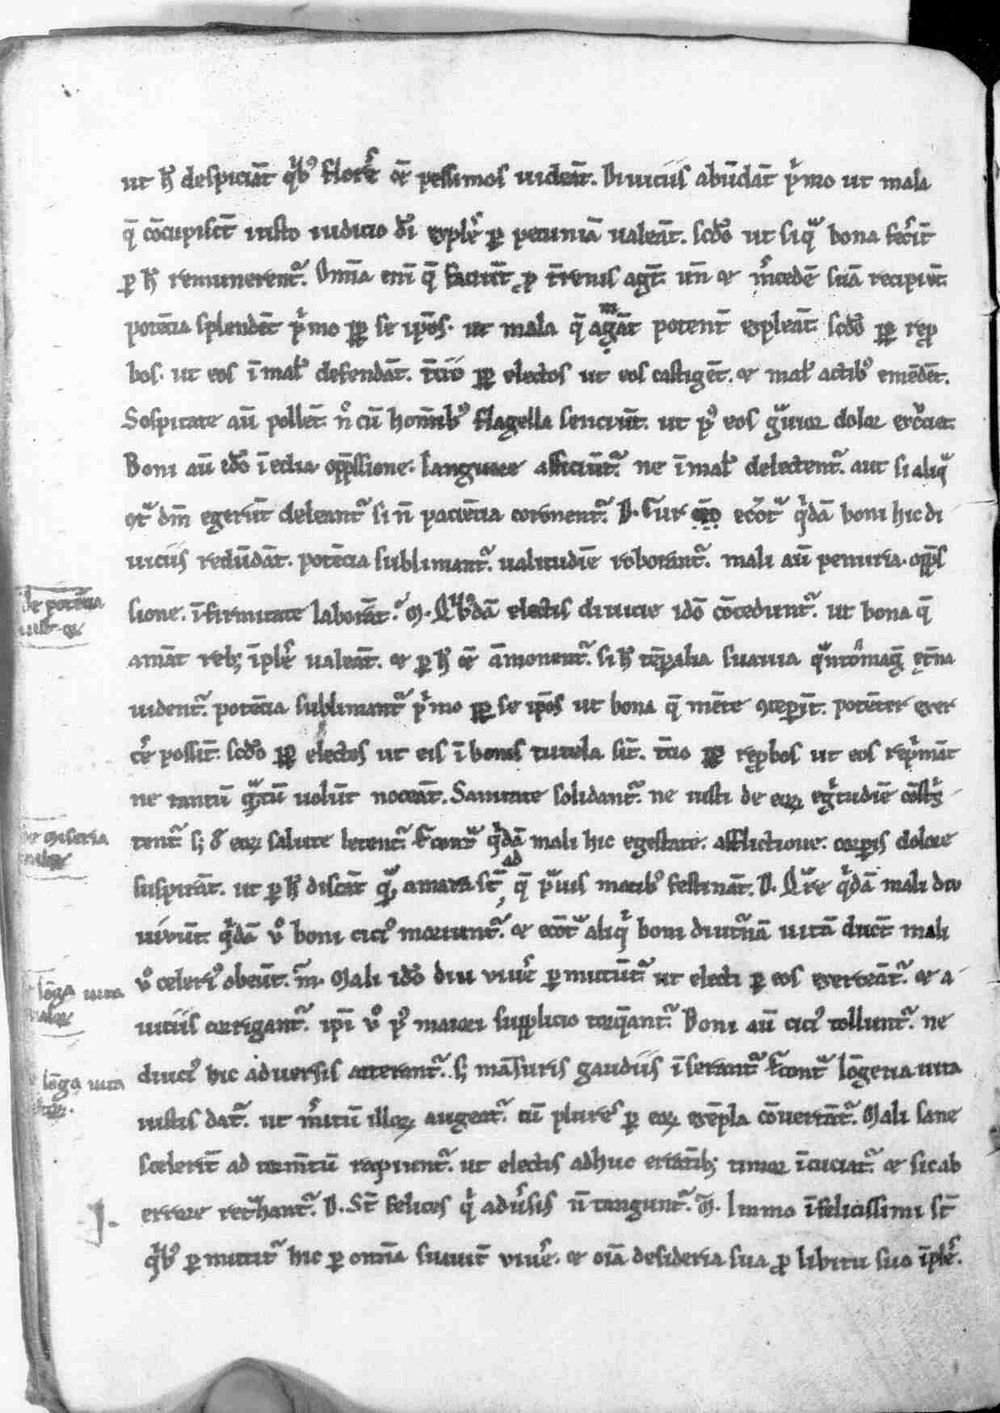 ut h̄ despiciāt qⁱb⁹ florēe et̄ pessimos uideāt. Diuiciis abūdāt pⁱmo ut mala
q̄ cōcupiscūt iusto iudicio dei explēe ꝑ pecuniā ualeāt. scdo ut siqᵃ bona fecͥūt
ꝑ h̄ remunerent᷑. Om̄ia eni q̄ faciūt ꝓ t̄renis agūt. un̄ et m̄cedē suā recipiūt.
potētia splendēt pⁱmo ꝓpt̄ se ip̄os. ut mala q̄ amāt potent᷑ expleāt. scdo ꝓpt̄ repro
bos. ut eos ī mal̄ defendāt. t̄cio ꝓpt̄ electos ut eos castigēt. et mal̄ actib⁹ emēdēt.
Sospitate aū pollēt n̄ cū hom̄ib⁹ flagella senciūt. ut p⁹ eos gᵃuior dolor excͥciet.
Boni aū ido īedia. opp̄ssione. languore afficiūt᷑. ne ī mal̄ delectent᷑. aut si aliqᵃ
ꝯtᵃ dm̄ egerūt deleant᷑ si n̄ paciētia coronent᷑. D. Cur ecotᵃ qⁱdā boni hic di
uiciis redūdāt. potētia sublimant᷑. ualitudīe roborant᷑. mali aū penuria. opp̄s
sione. īfirmitate laborāt᷑. M. Qⁱb⁹dā electis diuicie ido cōcedunt᷑. ut bona q̄
amāt reb; īplēe ualeāt. et ꝑ h̄ et̄ āmonent᷑. si h̄ tēꝑalia suauia qᵃntomag̅ et̄na
uident᷑. potētia sublimant᷑ pⁱmo ꝓpt̄ se ip̄os ut bona q̄ mēte ꝯceꝑūt. potēter exer
cēe possīt. scdo ꝓpt̄ electos ut eis ī bonis tutela sīt. t̄cio ꝓpt̄ rep̄bos ut eos repⁱmāt
ne tantū qᵃntū uolūt noceāt. Sanitate solidant᷑. ne iusti de eoꝝ egⁱtudīe cōtⁱs
tent᷑ s; d̄ eoꝝ salute letent᷑. Ecōtᵃ qⁱdā mali hic egestate. afflictione. corꝑis dolore
suspirāt. ut ꝑ h̄ discāt qᵃm amara st̄ ad q̄ pᵃuis motib⁹ festināt. D. Qᵃre qⁱdā mali diu
uiuūt. qⁱdā v̊ boni cici⁹ moriunt᷑. et ecotᵃ aliqⁱ boni diutͥnā uitā ducūt mali
v̊ celeri⁹ obeūt. M. Mali ido diu viuēe ꝑmittūt᷑ ut electi ꝑ eos exerceāt᷑. et a
uiciis corrigant᷑. ip̄i v̊ p⁹ maiori supplicio torq̄ant᷑. Boni aū cici⁹ tollunt᷑. ne
diuci⁹ hic aduersis atterant᷑. s; māsuris gaudiis īserant᷑. Ecotᵃ lōgeua uita
iustis dat᷑. ut m̄itū illoꝝ augeat᷑. cū plures ꝑ eoꝝ exēpla cōuertāt᷑. Mali sane
scelerit᷑ ad torm̄tū rapiunt᷑. ut electis adhuc errātib; timor īcuciat᷑. et sic ab
errore retᵃhant᷑. D. St̄ felices qⁱ adūsis n̄ tangunt᷑. M. Immo īfelicissimi st̄
qⁱb⁹ ꝑmittit᷑ hic ꝑ om̄ia suauit᷑ viuēe. et oīa desideria sua ꝓ libitu suo īplēe.
de potētia
de miseria
lōga uita
maloꝝ
lōga uita